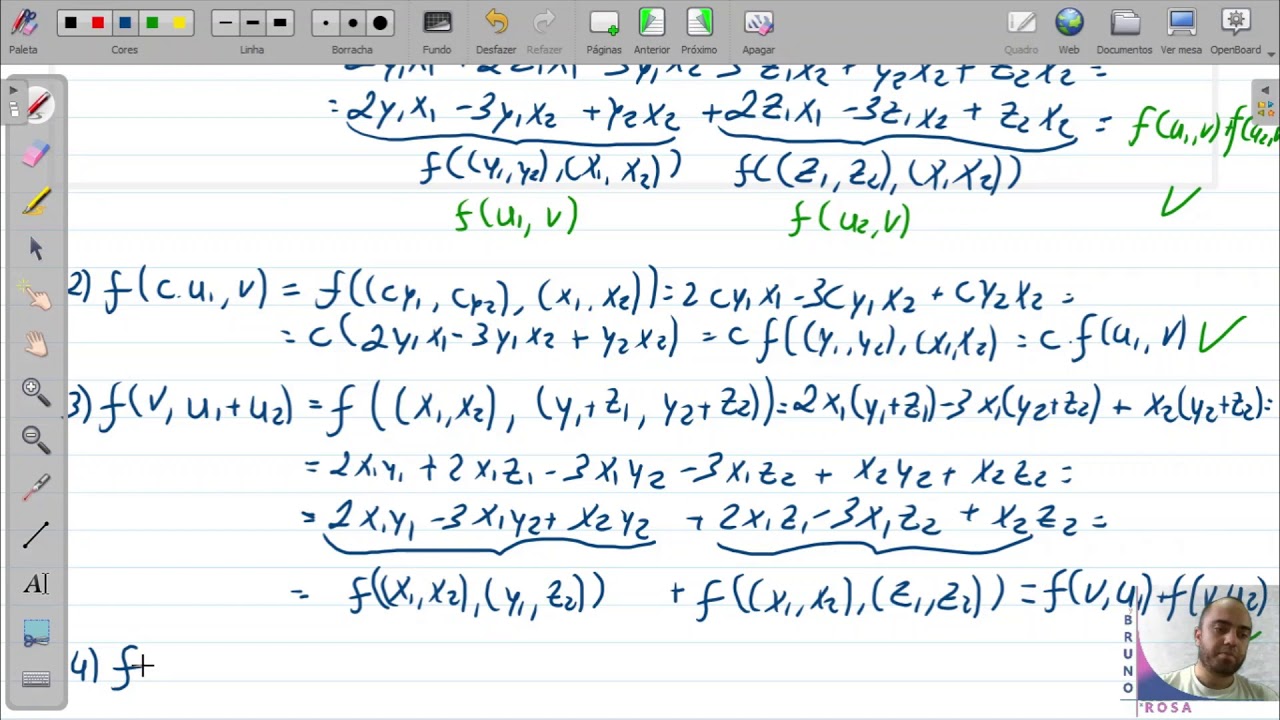 Paleta Cores Linha Borracha Fundo Desfazer Refazer Páginas Anterior Próximo Apagar Quadro Web Documentos Ver mesa OpenBoard
= 2y₁x₁ - 3y₁x₂ + y₂x₂ + 2z₁x₁ - 3z₁x₂ + z₂x₂ = f(u₁,v)+f(u₂,v
f((y₁,y₂),(x₁,x₂)) f((z₁,z₂),(x₁x₂))
f(u₁,v) f(u₂,v) ✓
2) f(c.u₁,v) = f((cy₁,cy₂),(x₁,x₂)) = 2cy₁x₁ - 3cy₁x₂ + cy₂x₂ =
= c(2y₁x₁ - 3y₁x₂ + y₂x₂) = c f((y₁,y₂),(x₁,x₂) = c.f(u₁,v) ✓
3) f(v,u₁+u₂) = f((x₁,x₂),(y₁+z₁,y₂+z₂)) = 2x₁(y₁+z₁) - 3x₁(y₂+z₂) + x₂(y₂+z₂) =
= 2x₁y₁ + 2x₁z₁ - 3x₁y₂ - 3x₁z₂ + x₂y₂ + x₂z₂ =
= 2x₁y₁ - 3x₁y₂ + x₂y₂ + 2x₁z₁ - 3x₁z₂ + x₂z₂ =
= f((x₁,x₂),(y₁,z₂)) + f((x₁,x₂),(z₁,z₂)) = f(v,u₁)+f(v,u₂)
4) f
BRUNO
ROSA